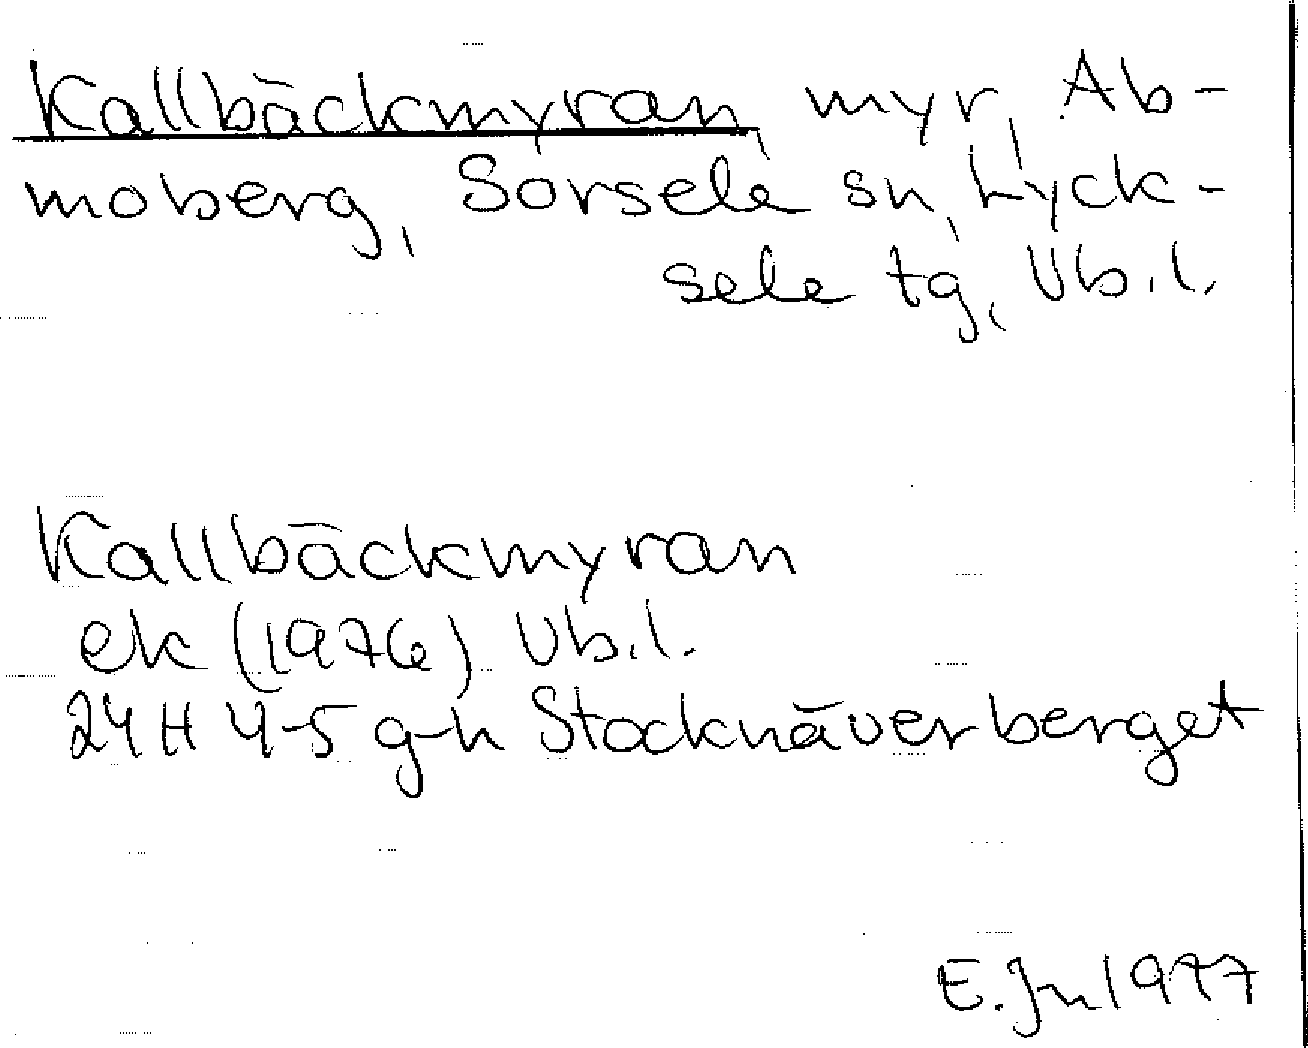 Kallbäckmyran, myr, Ab-
moberg, Sorsele sn, Lyck-
sele tg, Vb.l.
Kallbäckmyran
ek (1976) Vb.l.
24H 4-5 g-h Stocknäverberget
E.Jn 1977